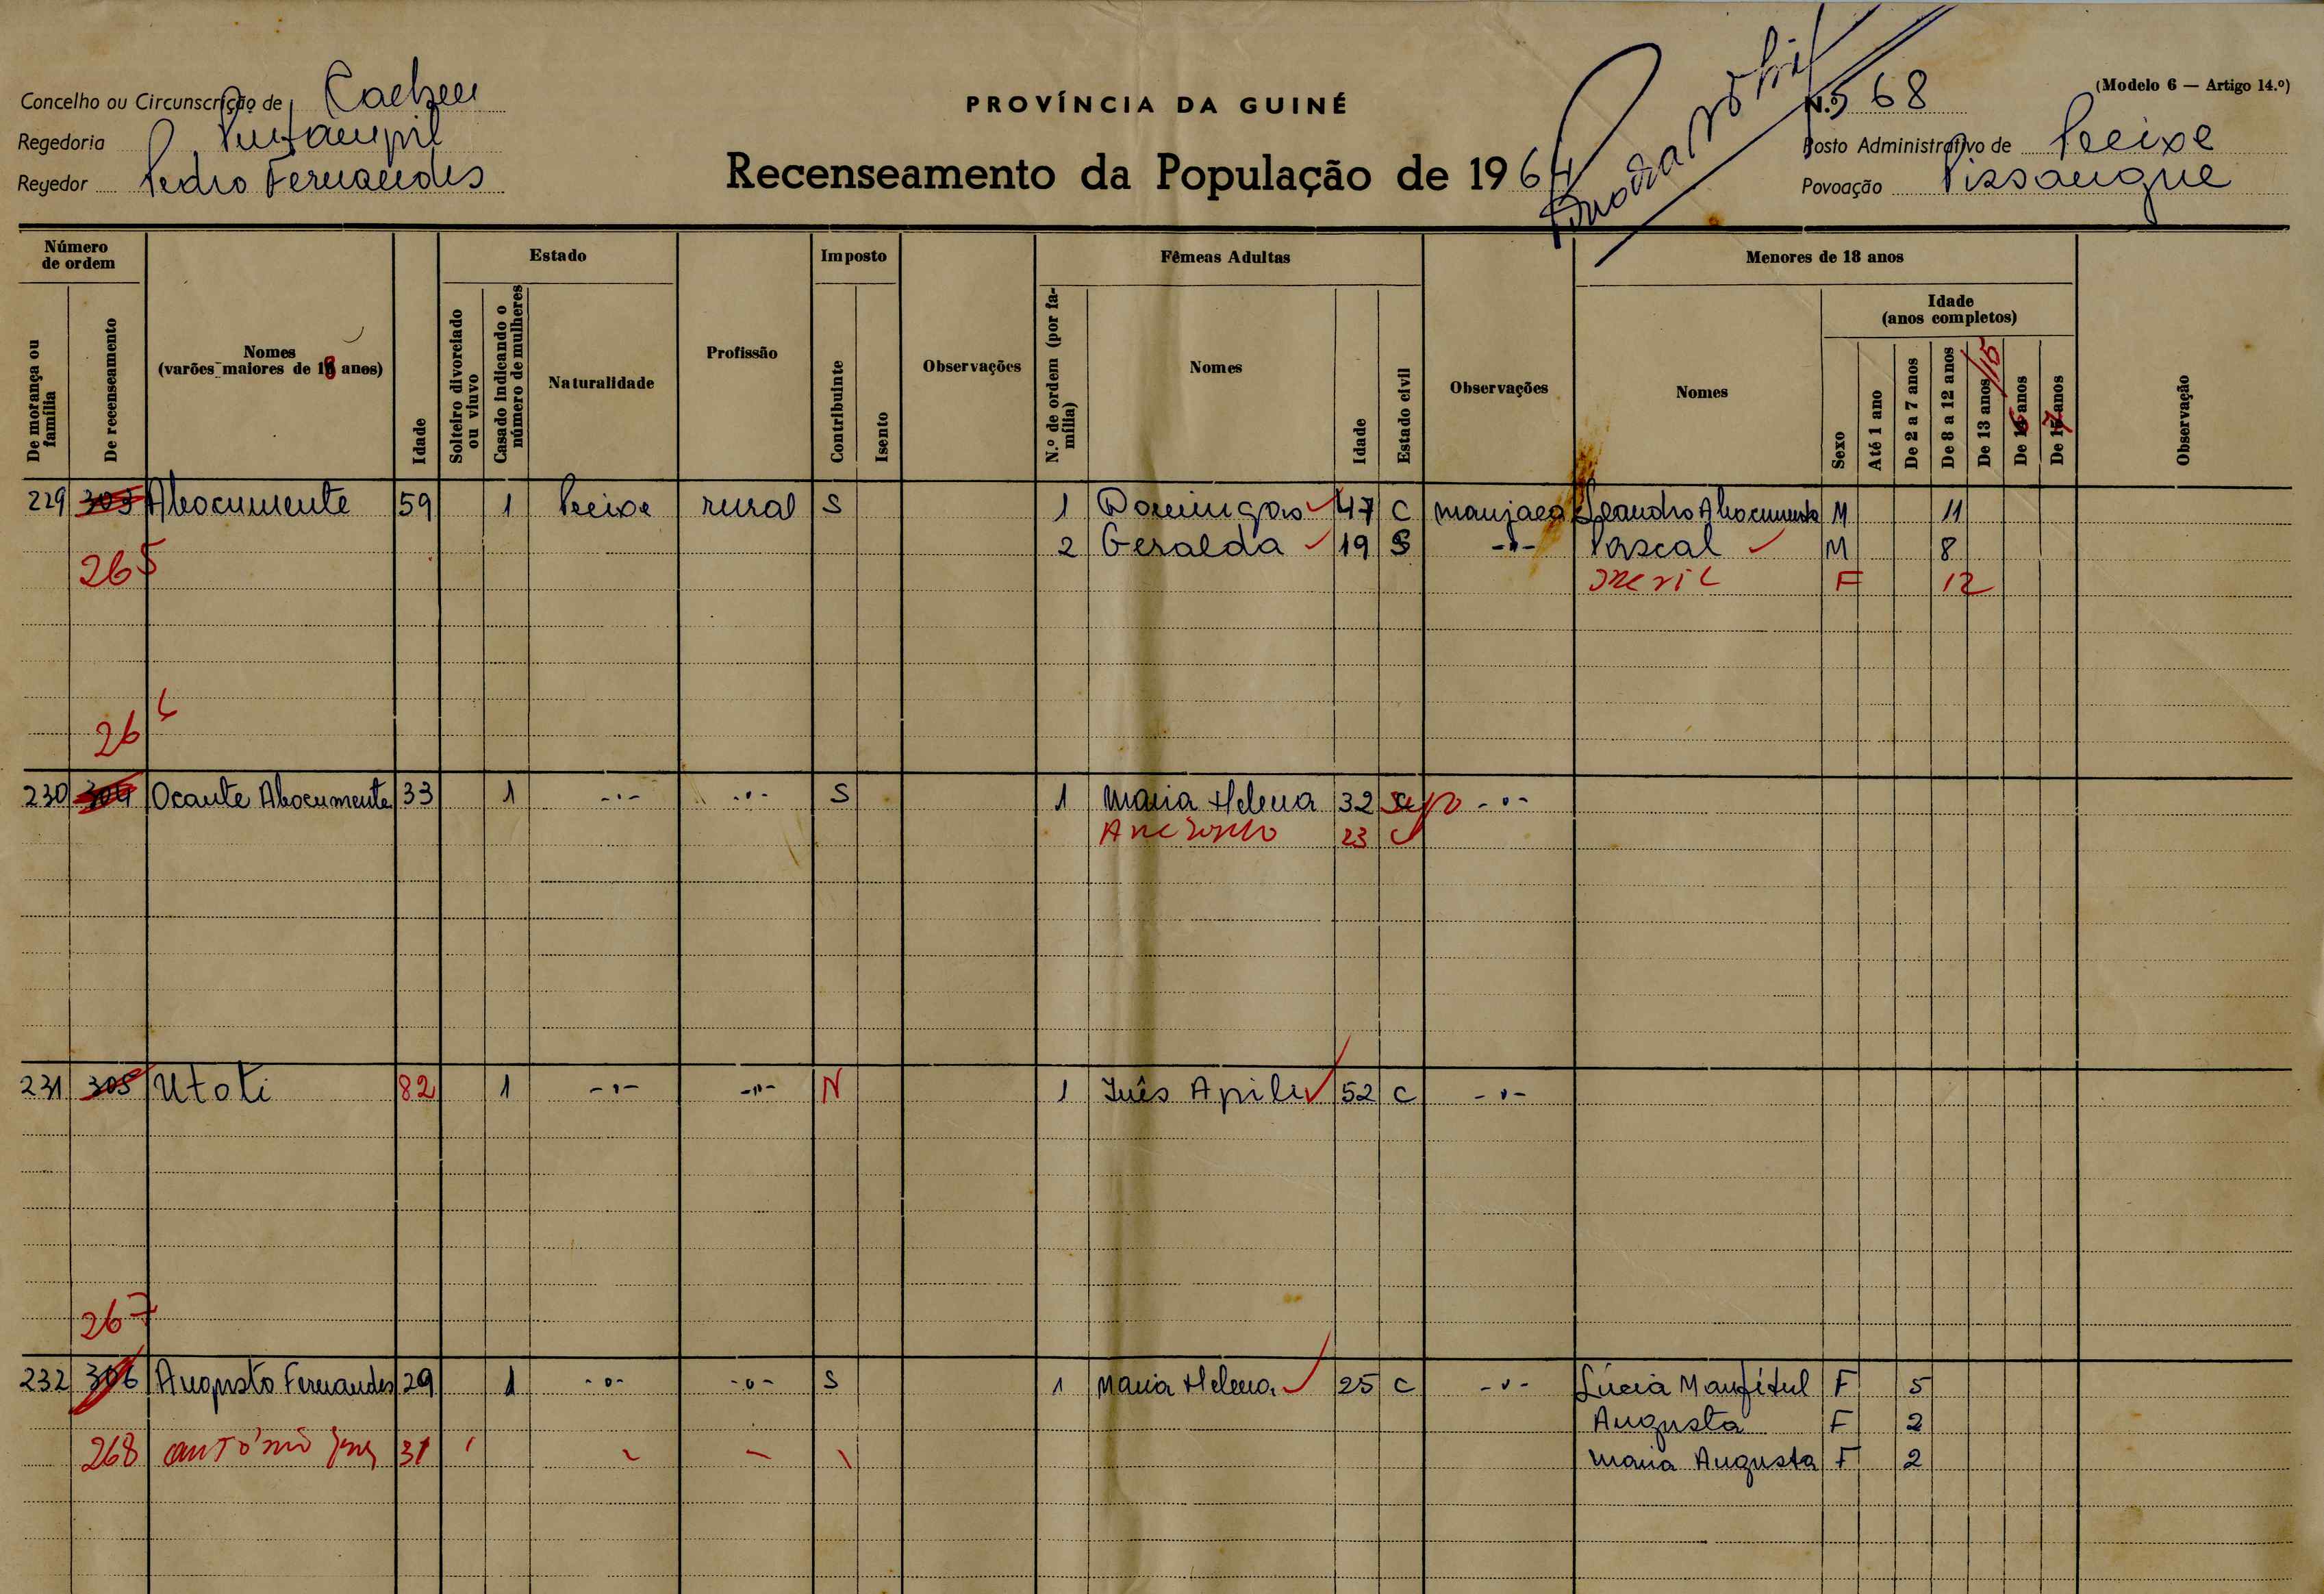 Concelho ou Circunscrição de Cacheu
Regedoria
Regedor Pedro Fernandes
PROVÍNCIA DA GUINÉ
Recenseamento da População de 1964
(Modelo 6 — Artigo 14.º)
N.º 568
Posto Administrativo de Pecixe
Povoação Pissangue
Número de ordem
De morança ou família
De recenseamento
Nomes
(varões maiores de 18 anos)
Idade
Estado
Solteiro divorciado ou viuvo
Casado indicando o número de mulheres
Naturalidade
Profissão
Imposto
Contribuinte
Isento
Observações
Fêmeas Adultas
N.º de ordem (por família)
Nomes
Idade
Estado civil
Observações
Menores de 18 anos
Nomes
Idade
(anos completos)
Sexo
Até 1 ano
De 2 a 7 anos
De 8 a 12 anos
De 13 anos /15
De 16 anos
De 17 anos
Observação
229 303 Abocumente 59 1 Pecixe rural S 1 Domingas 47 C manjaca Leandro Abocumente M 11
2 Geralda 19 S -"- Pascal M 8
265 F 12
266
230 304 Ocante Abocumente 33 1 -"- -"- S 1 Maria Helena 32 -"-
23 C
231 305 Utoti 82 1 -"- -"- N 1 Inês Apili 52 C -"-
267
232 306 Augusto Fernandes 29 1 -"- -"- S 1 Maria Helena 25 C -"- Lúcia Manfitul F 5
Augusta F 2
268 António 31 Maria Augusta F 2